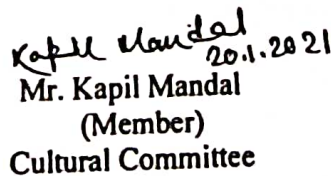 Kapil Mandal
20.1.2021
Mr. Kapil Mandal
(Member)
Cultural Committee